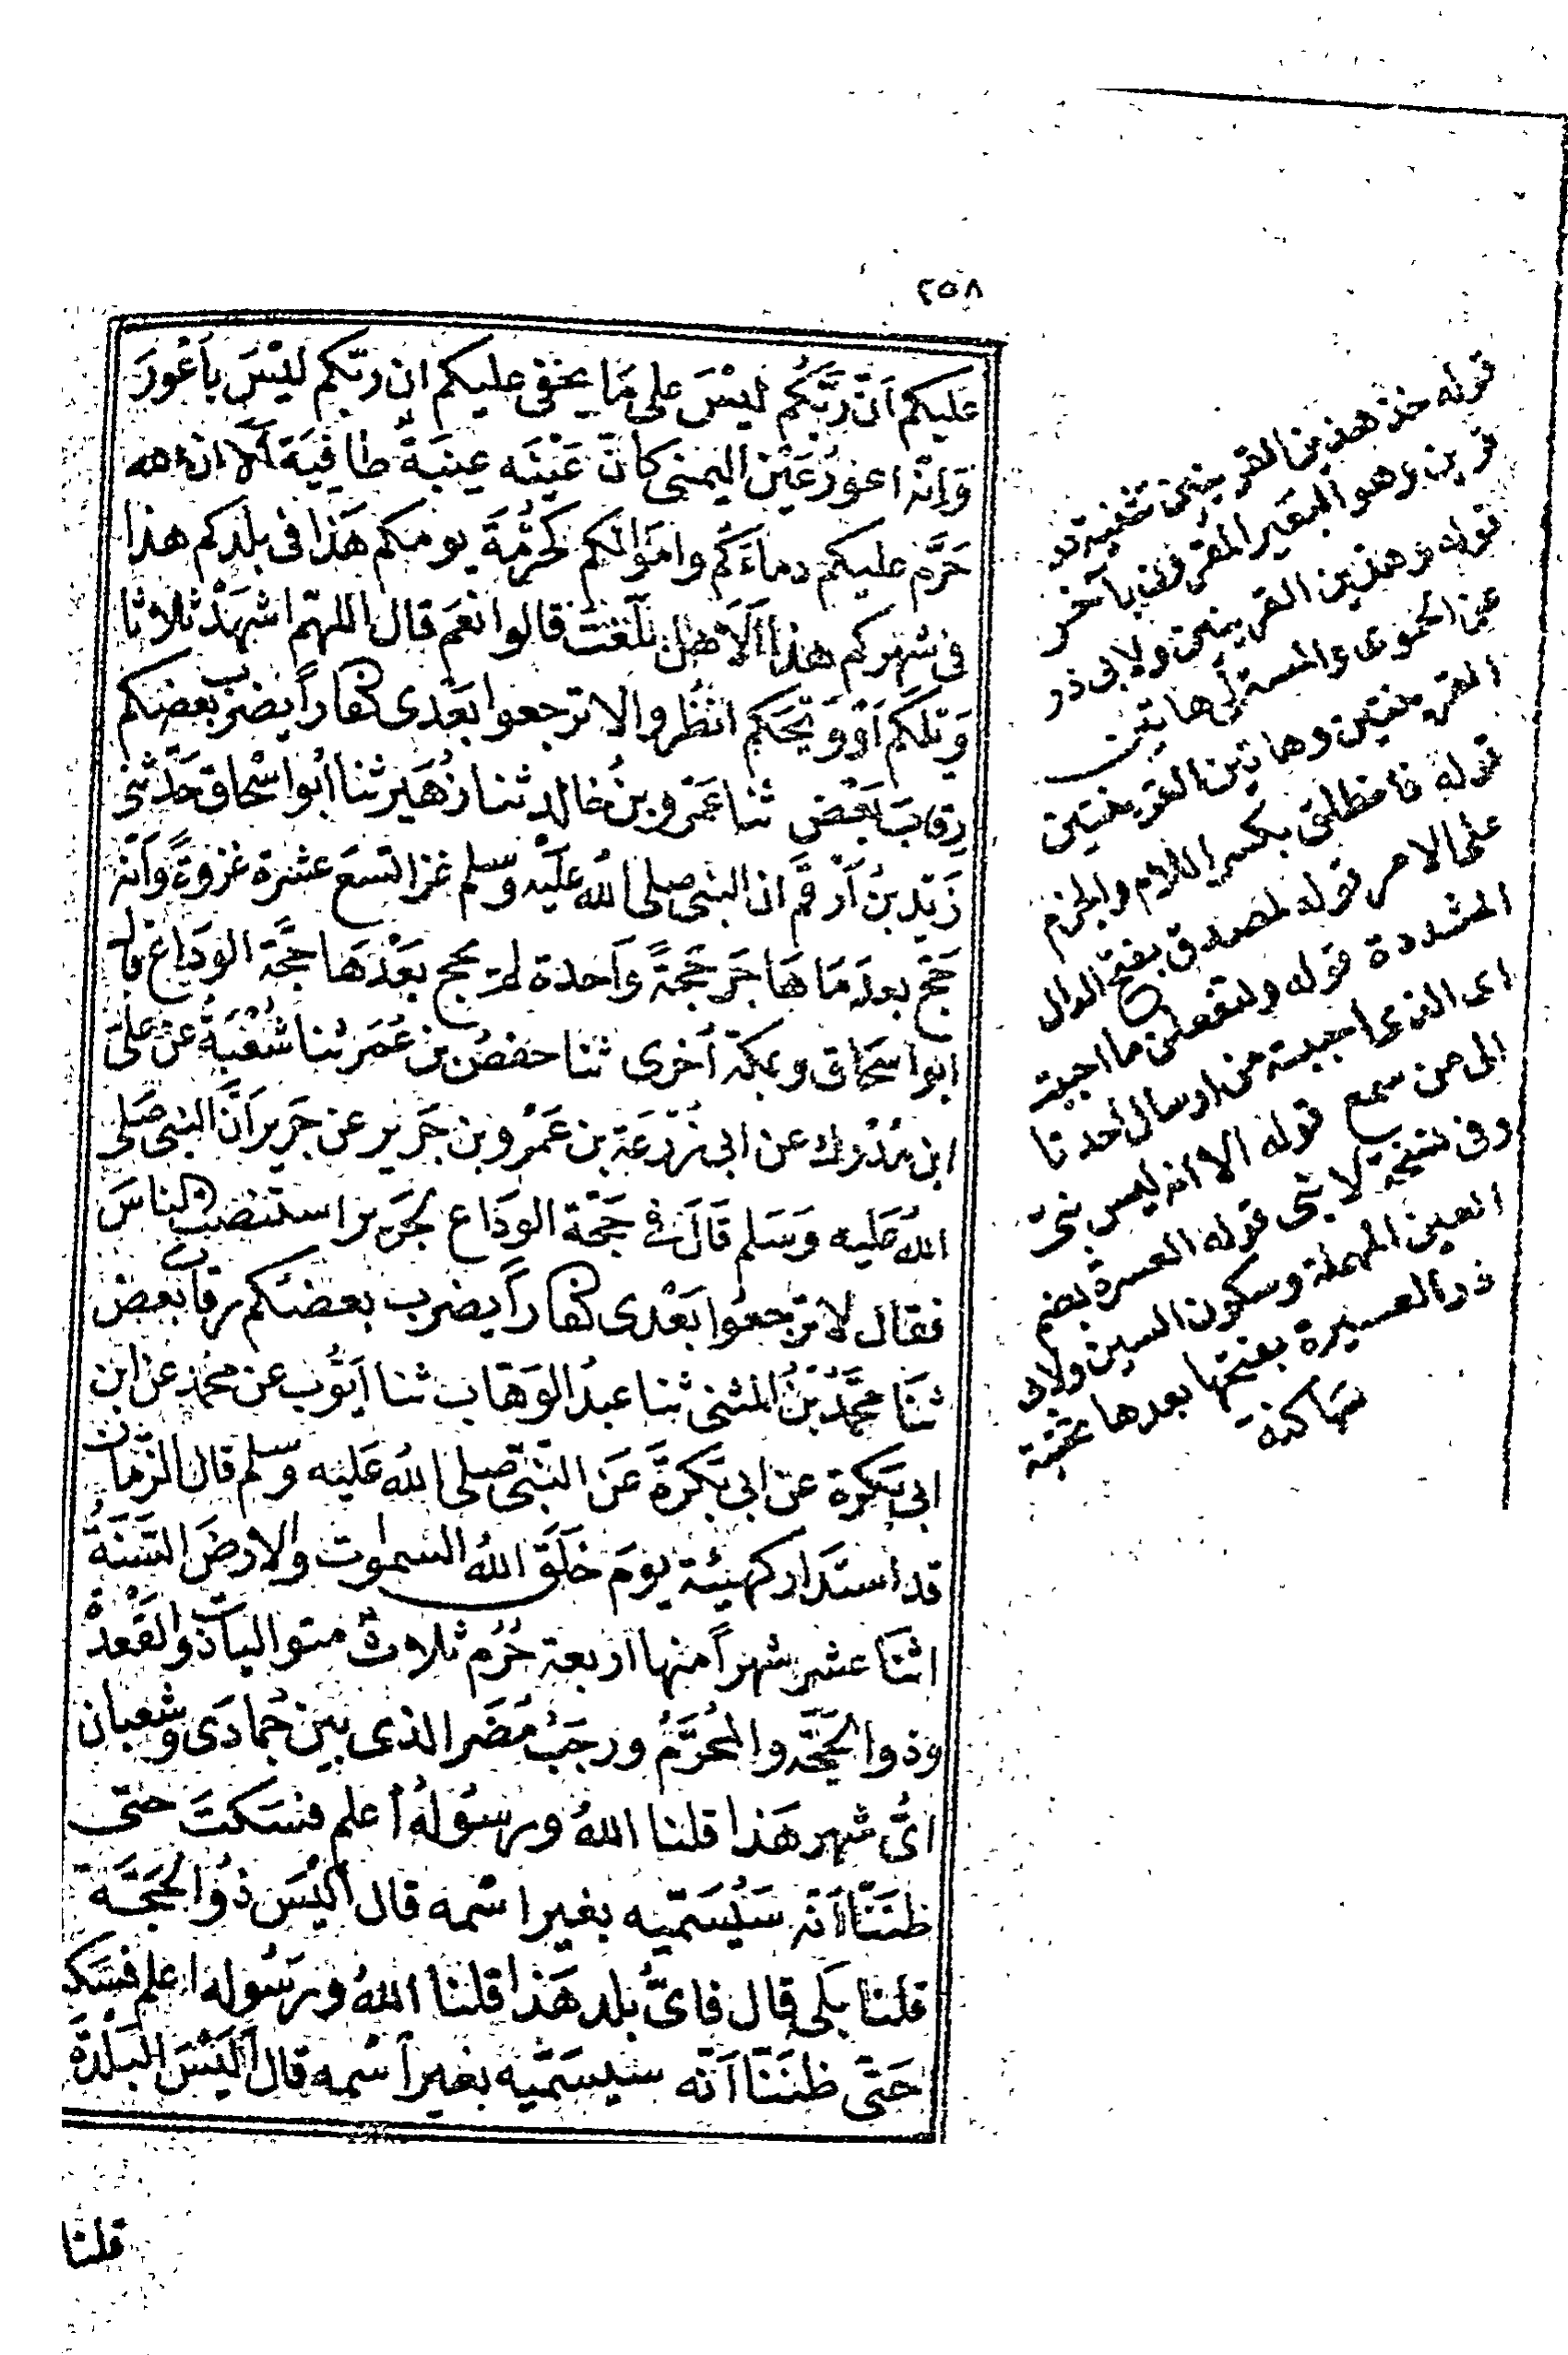 ٢٥٨
عليكم اَنَّ رَبَّكُم لَيْسَ على مَا يخفى عليكم ان ربّكم لَيْسَ بِاَعْوَرَ
وَاِنّه اعورُ عَيْن اليمنى كانَّ عَيْنَه عِنَبَةٌ طافِيَة اَلَا ان الله
حَرَّم عليكم دماءَكُم وامَوَالكم كَحُرْمَةِ يومكم هَذا فى بلدكم هذا
فى شهركم هذا اَلَا هَل بَلَّغْتُ قالوا نعَم قال اللهمّ اشهَدْ ثلاثا
وَيْلَكُم اَوْ وَيْحَكم انظُروا لا ترجعوا بَعْدى كفاراً يضرب بعضكم
رِقَابَ بَعْض ثنا عَمْرو بنُ خالد ثنا زُهَير ثنا اَبُوا سْحَاق حَدَّثَنى
زَيْد بنُ اَرْقَم ان النبى صلى اللهُ عَلَيْه وسلم غزا تسعَ عشرة غزوةً وَاَنّه
حَجّ بعدَ مَا هَاجَر حَجّةً وَاحدة لم يحج بَعْدَهَا حجَّة الوَدَاع قال
ابوا سحَاق وبمكة اُخرى ثنا حفصُ بن عُمَر ثنا شُعْبَةُ عن على
ابن مُدْرك عن ابى زُرْعَة بن عَمْرو بن جَرير عن جَرير اَنَّ النبى صَلى
اللهُ عَليه وَسَلم قالَ فى حجّة الوَدَاع لجَرير استنصت الناسَ
فقال لا ترجعُوا بَعْدى كفاراً يضرب بعضكم رقابَ بعض
ثنَا محمَّدُ بْنُ المثنى ثنا عبدُ الوَهاب ثنا اَيّوُب عن محمّد عن ابن
ابى بَكرة عن ابى بَكرَةَ عَن النبىّ صلى اللهُ عَليه وسلم قال الزّمَان
قد استَدَار كهيئة يومَ خَلَقَ اللهُ السموات والارضَ السَّنَةُ
اثنَا عشر شهراً منها اَربعة حُرُم ثلاثٌ متواليات ذُو القَعْدَة
وذو الحِجّة والمُحَرَّمُ ورجَبُ مُضَر الذى بَين جُمادَى وشعبان
اىُّ شهر هَذا قلنا اللهُ ورسُولهُ اَعلم فسَكتَ حتّى
ظنَنّا اَنّه سَيُسَمّيه بغير اسْمه قال اَليْسَ ذُو الحجَّة
قلنا بَلَى قال فاىُّ بلد هَذا قلنا اللهُ ورَسُوله اعلم فسَكـ
حَتّى ظنَنّا اَنّه سيسَمّيه بغير اسْمه قال اَلَيْسَ البَلْدَةَ
قلنا
قوله خذ هذين القرينين تثنية
قرين وهو البعير المقرون بآخر
قوله وهذين القرينين ولابى ذر
عن الحموى والمستملى هاتين
القرينتين وهاتين القرينتين
قوله فانطلق بكسر اللام والجزم
على الامر قوله لمصدق بفتح الدال
المشددة قوله ولتفعلن ما احببته
اى الذى احببته من ارسال احدنا
الى من سمع قوله الا انه ليس نبى
وفى نسخة لا نبى قوله العسرة بضم
العين المهملة وسكون السين ولابى
ذر العسيرة بفتحها بعدها تحتية
ساكنة